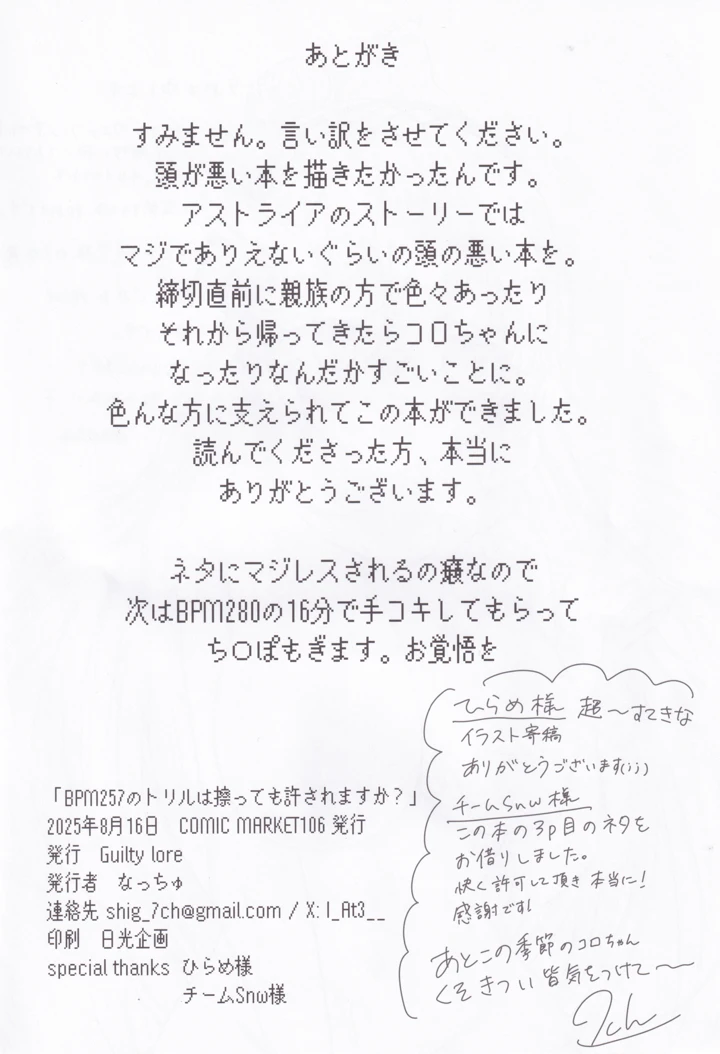 あとがき
すみません。言い訳をさせてください。
頭が悪い本を描きたかったんです。
アストライアのストーリーでは
マジでありえないぐらいの頭の悪い本を。
締切直前に親族の方で色々あったり
それから帰ってきたらコロちゃんに
なったりなんだかすごいことに。
色んな方に支えられてこの本ができました。
読んでくださった方、本当に
ありがとうございます。
ネタにマジレスされるの癪なので
次はBPM280の16分で手コキしてもらって
ち〇ぽもぎます。お覚悟を
「BPM257のトリルは擦っても許されますか?」
2025年8月16日 COMIC MARKET106 発行
発行 Guilty lore
発行者 なっちゅ
連絡先 shig_7ch@gmail.com / X: I_At3__
印刷 日光企画
special thanks ひらめ様
チームSnω様
ひらめ様 超〜すてきな
イラスト寄稿
ありがとうございます(;;)
チームSnw様
この本の3p目のネタを
お借りしました。
快く許可して頂き 本当に!
感謝です!
あとこの季節のコロちゃん
くそきつい 皆気をつけて〜
7ch